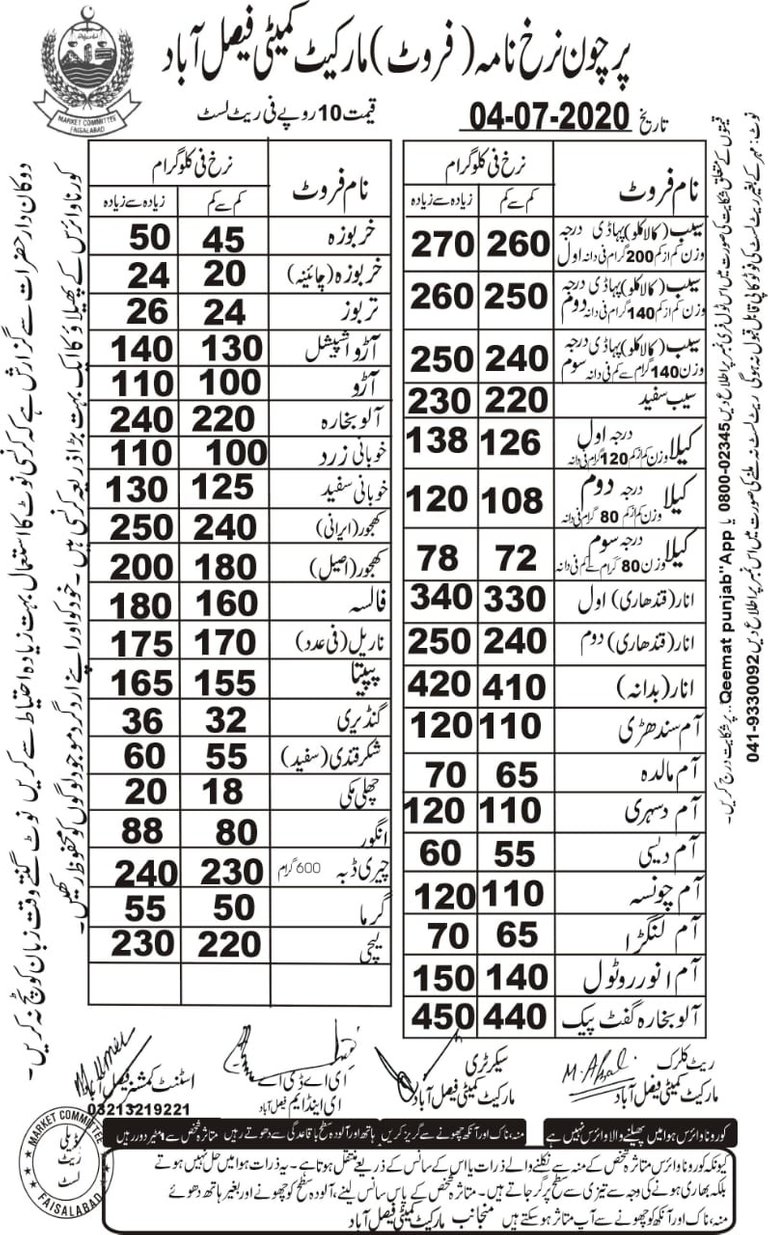 پرچون نرخ نامہ (فروٹ) مارکیٹ کمیٹی فیصل آباد
MARKET COMMITTEE
FAISALABAD
تاریخ 04-07-2020 قیمت 10 روپے فی ریٹ لسٹ
نام فروٹ نرخ فی کلوگرام
کم سے کم زیادہ سے زیادہ
سیب (کالا کلو) پہاڑی درجہ اول وزن کم از کم 200 گرام فی دانہ 260 270
سیب (کالا کلو) پہاڑی درجہ دوم وزن کم از کم 140 گرام فی دانہ 250 260
سیب (کالا کلو) پہاڑی درجہ سوم وزن 140 گرام سے کم فی دانہ 240 250
سیب سفید 220 230
کیلا درجہ اول وزن کم از کم 120 گرام فی دانہ 126 138
کیلا درجہ دوم وزن کم از کم 80 گرام فی دانہ 108 120
کیلا درجہ سوم وزن 80 گرام سے کم فی دانہ 72 78
انار (قندھاری) اول 330 340
انار (قندھاری) دوم 240 250
انار (بدانہ) 410 420
آم سندھڑی 110 120
آم مالدہ 65 70
آم دسہری 110 120
آم دیسی 55 60
آم چونسہ 110 120
آم لنگڑا 65 70
آم انور روٹول 140 150
آلوبخارہ گفٹ پیک 440 450
نام فروٹ نرخ فی کلوگرام
کم سے کم زیادہ سے زیادہ
خربوزہ 45 50
خربوزہ (چائینہ) 20 24
تربوز 24 26
آڑو اسپیشل 130 140
آڑو 100 110
آلوبخارہ 220 240
خوبانی زرد 100 110
خوبانی سفید 125 130
کھجور (ایرانی) 240 250
کھجور (اصیل) 180 200
فالسہ 160 180
ناریل (فی عدد) 170 175
پپیتا 155 165
گنڈیری 32 36
شکرقندی (سفید) 55 60
چھلی مکی 18 20
انگور 80 88
چیری ڈبہ 600 گرام 230 240
گرما 50 55
لیچی 220 230
نوٹ: مہر کے بغیر ریٹ لسٹ کی فوٹو کاپی قابل قبول نہ ہوگی۔ ریٹ لسٹ نہ ملنے کی صورت میں اس نمبر پر اطلاع دیں 041-9330092
قیمتوں کے متعلق شکایت کی صورت میں اس ٹول فری نمبر پر اطلاع دیں 0800-02345 یا Qeemat punjab"App.. پر شکایت درج کریں۔
کورنا وائرس کے پھیلاؤ کا ایک بہت بڑا ذریعہ کرنسی ہیں۔ خود کو اور اپنے ارد گرد موجود لوگوں کو محفوظ رکھیں۔
دوکان دار حضرات سے گزارش ہے کہ کرنسی نوٹ کا استعمال بہت زیادہ احتیاط سے کریں نوٹ گنتے وقت زبان کو ٹچ نہ کریں۔
ریٹ کلرک
مارکیٹ کمیٹی فیصل آباد
سیکرٹری
مارکیٹ کمیٹی فیصل آباد
ای اے ڈی اے
ای اینڈ ایم فیصل آباد
اسٹنٹ کمشنر فیصل آباد
03213219221
MARKET COMMITTEE
ڈیلی
ریٹ
لسٹ
FAISALABAD
کورونا وائرس ہوا میں پھیلنے والا وائرس نہیں ہے
منہ، ناک اور آنکھ چھونے سے گریز کریں ہاتھ اور آلودہ سطح باقاعدگی سے دھوتے رہیں متاثرہ شخص سے 1 میٹر دور رہیں
کیونکہ کورونا وائرس متاثرہ شخص کے منہ سے نکلنے والے ذرات یا اس کے سانس کے ذریعے منتقل ہوتا ہے۔ یہ ذرات ہوا میں حل نہیں ہوتے
بلکہ بھاری ہونے کی وجہ سے تیزی سے سطح پر گر جاتے ہیں۔ متاثرہ شخص کے پاس سانس لینے، آلودہ سطح کو چھونے اور بغیر ہاتھ دھوئے
منہ، ناک اور آنکھ کو چھونے سے آپ متاثر ہو سکتے ہیں منجانب مارکیٹ کمیٹی فیصل آباد